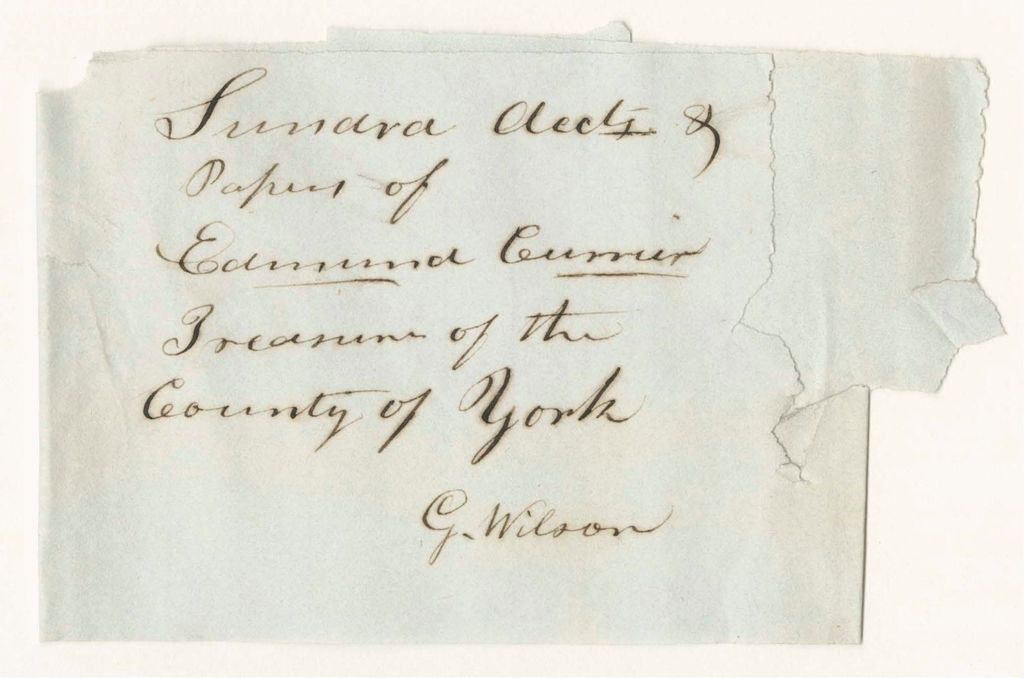 Sundra Accts &
Papers of
Edmund Currier
Treasurer of the
County of York
G. Wilson